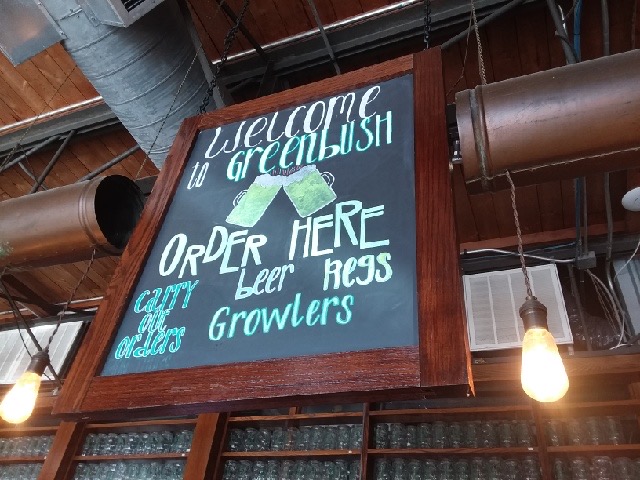 Welcome
to GreenbUSH
ORDER HERE
beer Kegs
Carry
out
orders
Growlers